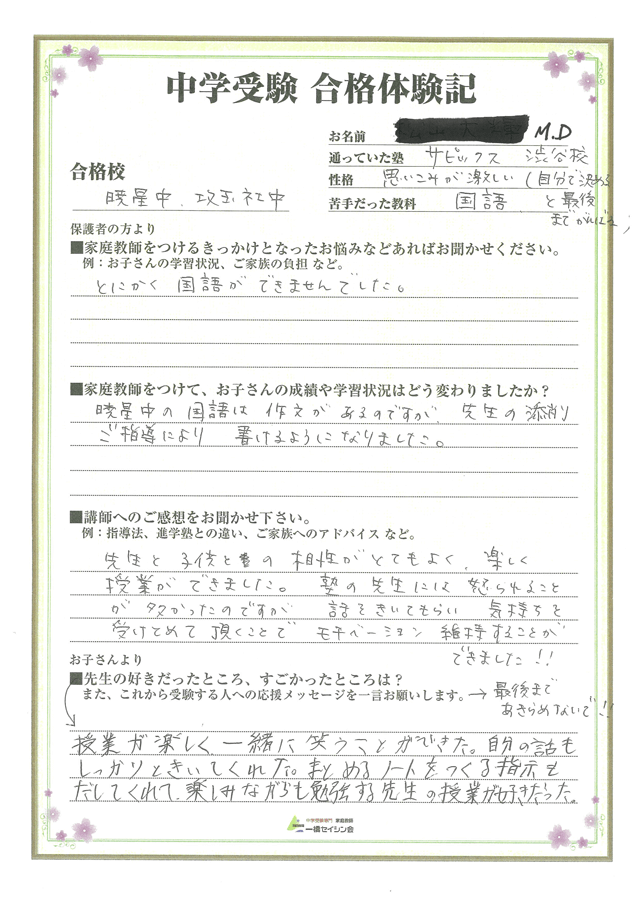 中学受験 合格体験記
お名前 M.D
通っていた塾 サピックス 渋谷校
合格校
性格 思いこみが激しい(自分で決める
暁星中、攻玉社中
苦手だった教科 国語 と最後
までがんばる)
保護者の方より
■家庭教師をつけるきっかけとなったお悩みなどあればお聞かせください。
例：お子さんの学習状況、ご家族の負担 など。
とにかく 国語が できませんでした。
■家庭教師をつけて、お子さんの成績や学習状況はどう変わりましたか？
暁星中の国語は 作文があるのですが、先生の添削
ご指導により 書けるようになりました。
■講師へのご感想をお聞かせ下さい。
例：指導法、進学塾との違い、ご家族へのアドバイス など。
先生と子供との 相性がとてもよく、楽しく
授業ができました。 塾の先生には 怒られること
が 多かったのですが 話をきいてもらい 気持ちを
受けとめて 頂くことで モチベーション 維持することが
できました!!
お子さんより
■先生の好きだったところ、すごかったところは？
また、これから受験する人への応援メッセージを一言お願いします。→ 最後まで
あきらめないで!!
授業が楽しく、一緒に笑うことができた。自分の話も
しっかりときいてくれた。まとめるノートをつくる指示も
だしてくれて、楽しみながらも勉強する先生の授業が好きだった。
中学受験専門 家庭教師
一橋セイシン会